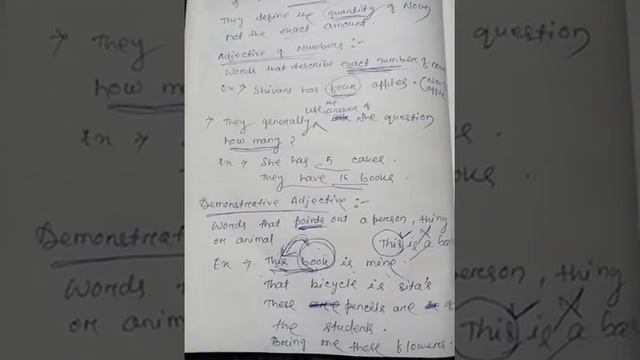 They define the quantity of Noun
not the exact amount.
Adjective of Numbers :-
Words that describe exact number of noun
Ex → Shivani has four apples. (No. of apple
→ They generally use the answer of the question
how many ?
Ex → She has 5 cakes.
They have 15 books
Demonstrative Adjective :-
Words that points out a person, thing
or animal
Ex → This book is mine.
This is a ba
That bicycle is sita's
These pencils are of
the students.
Bring me these flowers.